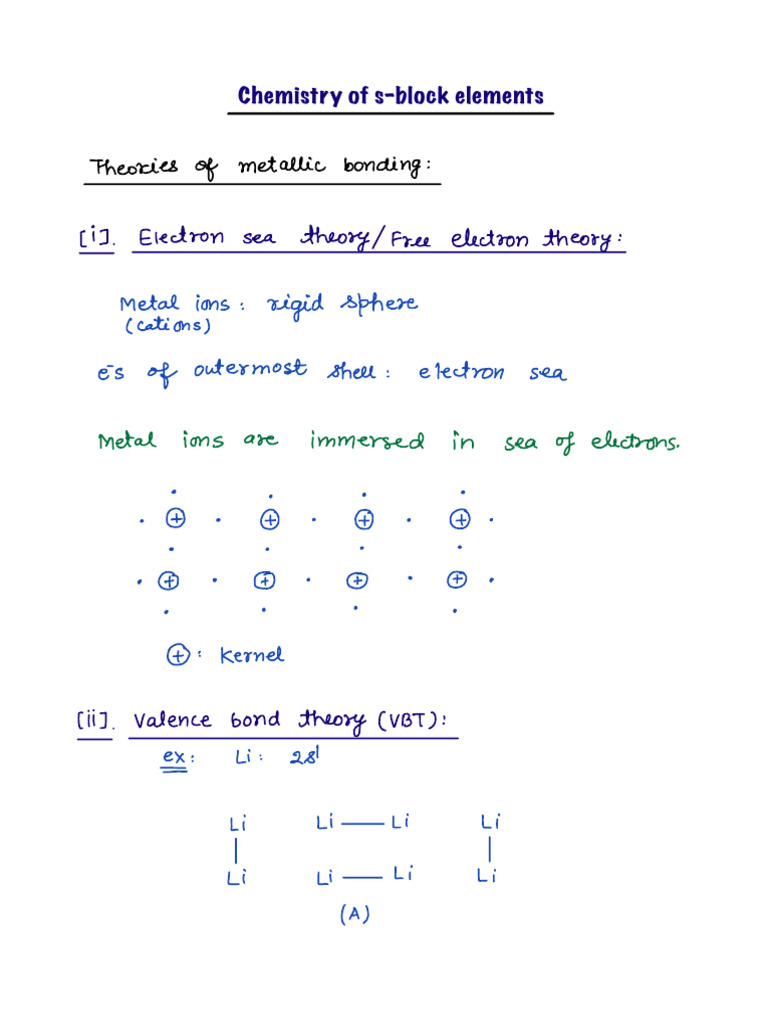 Chemistry of s-block elements
Theories of metallic bonding:
[i]. Electron sea theory/Free electron theory:
Metal ions: rigid sphere
(cations)
e⁻s of outermost shell: electron sea
Metal ions are immersed in sea of electrons.
+ + + +
+ + + +
+ : Kernel
[ii]. Valence bond theory (VBT):
ex: Li: 2s¹
Li Li — Li Li
Li Li — Li Li
(A)